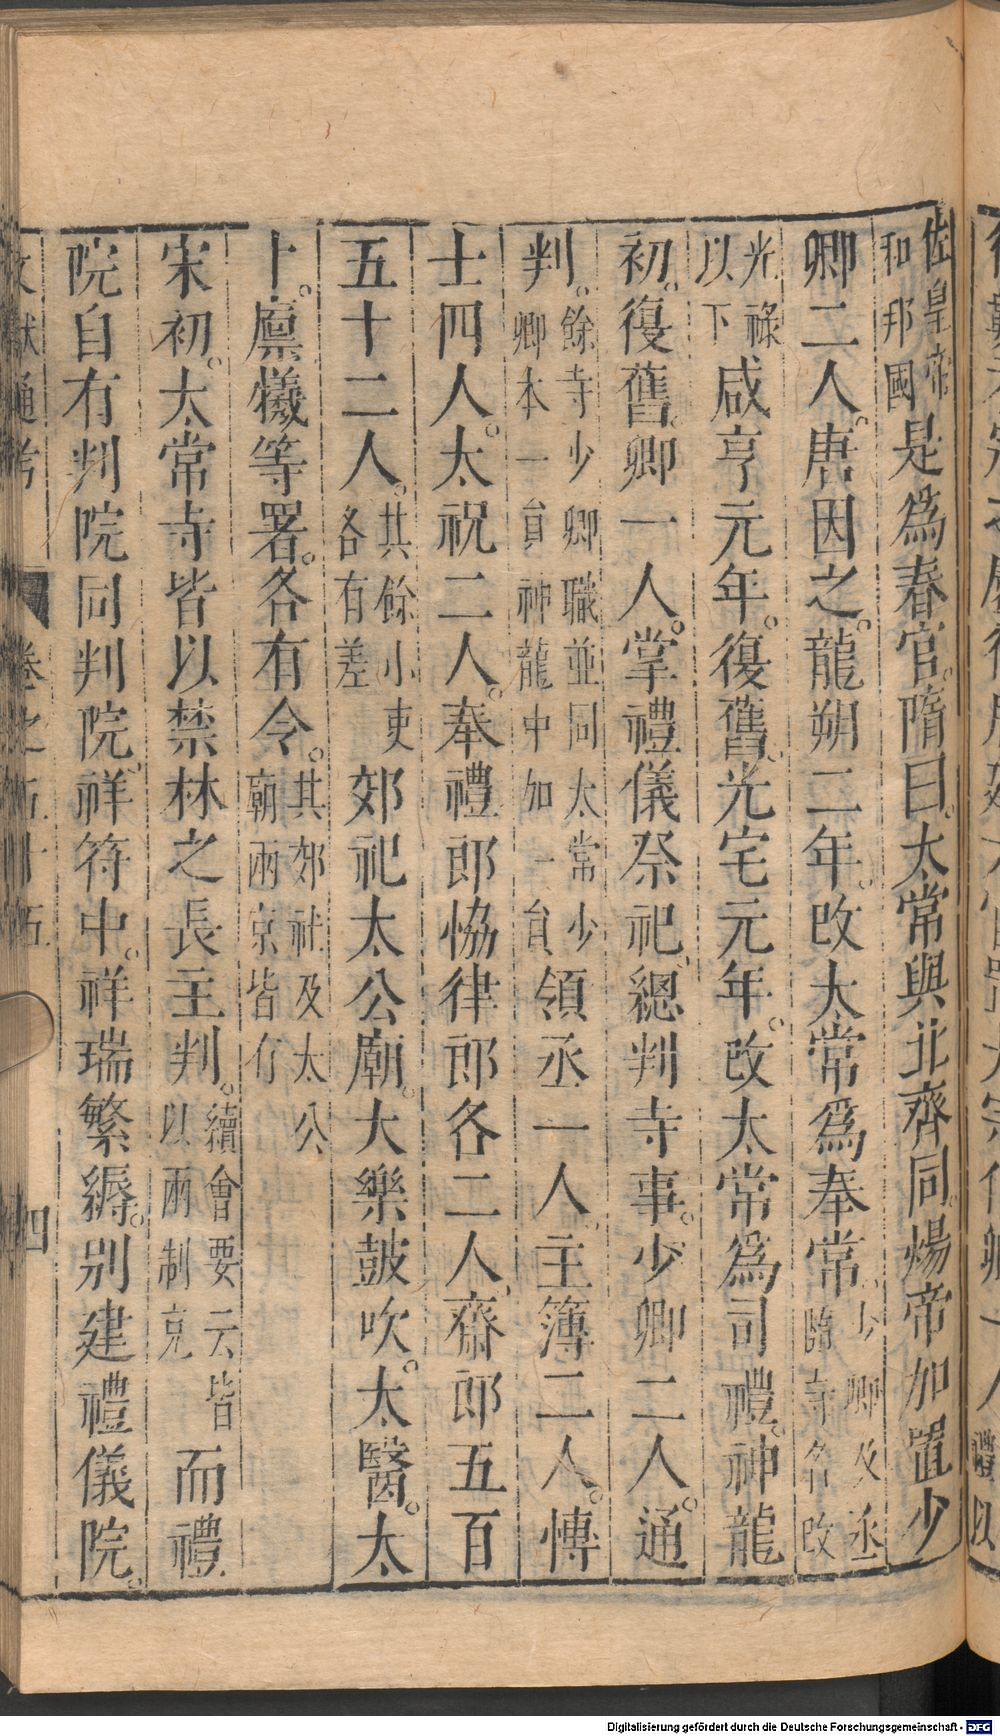 佐皇帝和邦國是爲春官。隋曰。太常與北齊同。煬帝加置少
卿二人。唐因之。龍朔二年。改太常爲奉常。少卿及丞隨寺名改
光祿以下咸亨元年。復舊。光宅元年。改太常爲司禮。神龍
初。復舊。卿一人。掌禮儀祭祀。總判寺事。少卿二人。通
判。餘寺少卿職並同太常少卿本一員神龍中加一員領丞一人。主簿二人。愽
士四人。太祝二人。奉禮郎恊律郎各二人。齋郎五百
五十二人。其餘小吏各有差郊祀太公廟。大樂鼓吹。太醫。太
卜。廩犧等署。各有令。其郊社及太公廟兩京皆有
宋初。太常寺皆以禁林之長主判。續會要云皆以兩制充而禮
院自有判院同判院。祥符中。祥瑞繁縟。別建禮儀院。
文獻通考 卷之五十五 四
Digitalisierung gefördert durch die Deutsche Forschungsgemeinschaft - DFG